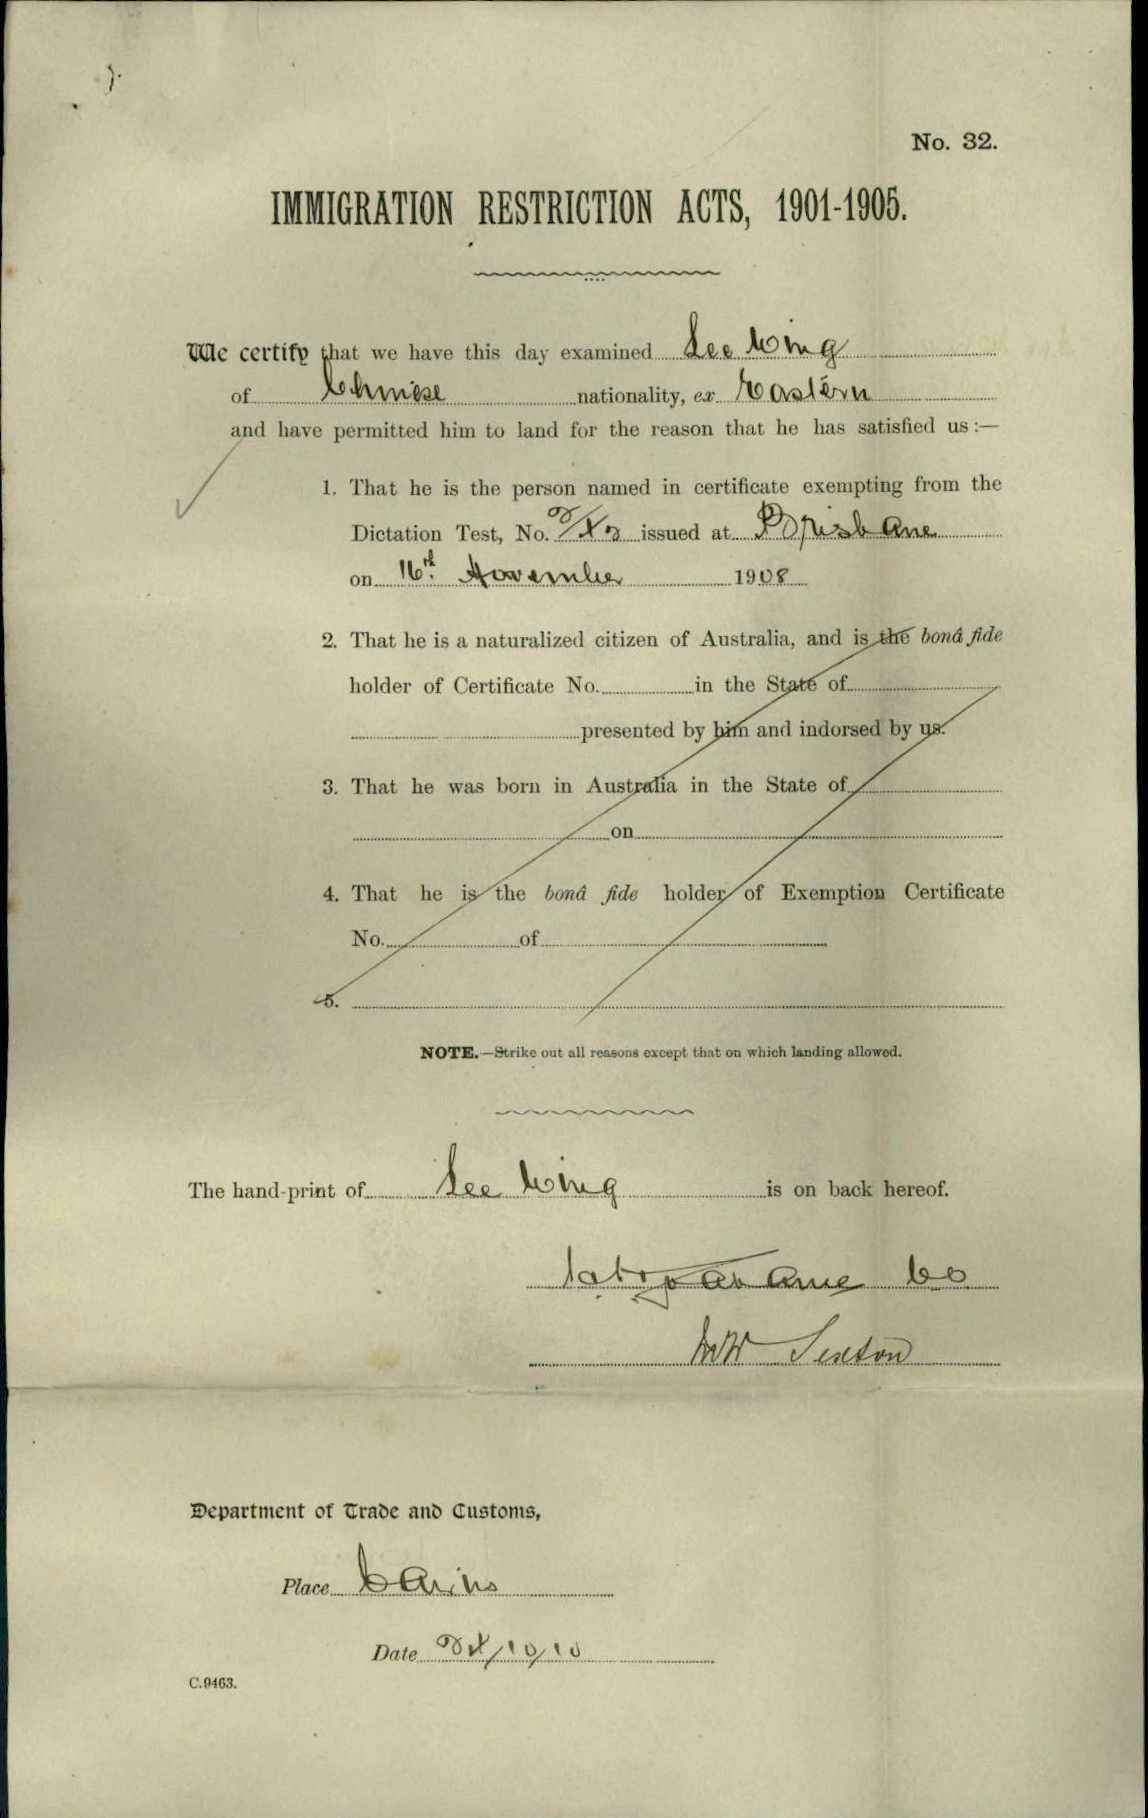 No. 32.
IMMIGRATION RESTRICTION ACTS, 1901-1905.
We certify that we have this day examined See Wing
of Chinese nationality, ex Eastern
and have permitted him to land for the reason that he has satisfied us:—
1. That he is the person named in certificate exempting from the
Dictation Test, No. issued at Brisbane
on 16th November 1908
2. That he is a naturalized citizen of Australia, and is the bonâ fide
holder of Certificate No. in the State of
presented by him and indorsed by us.
3. That he was born in Australia in the State of
on
4. That he is the bonâ fide holder of Exemption Certificate
No. of
5.
NOTE.—Strike out all reasons except that on which landing allowed.
The hand-print of See Wing is on back hereof.
Sexton
Department of Trade and Customs,
Place Cairns
Date /10/10
C.9463.